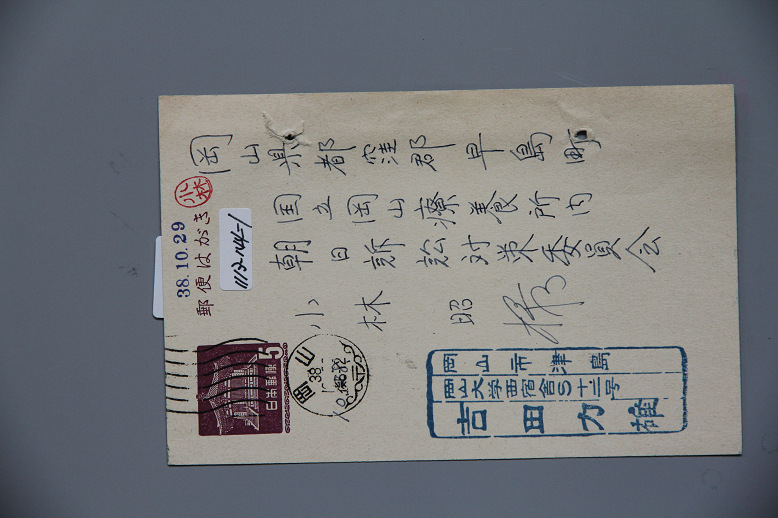 岡山県都窪郡早島町
国立岡山療養所内
朝日訴訟対策委員会
小林昭 様
小林
38.10.29
郵便はがき
1112-N4-1
5
日本郵便
岡山
38.
岡山市津島
岡山大学西宿舎S十二号
吉田力雄